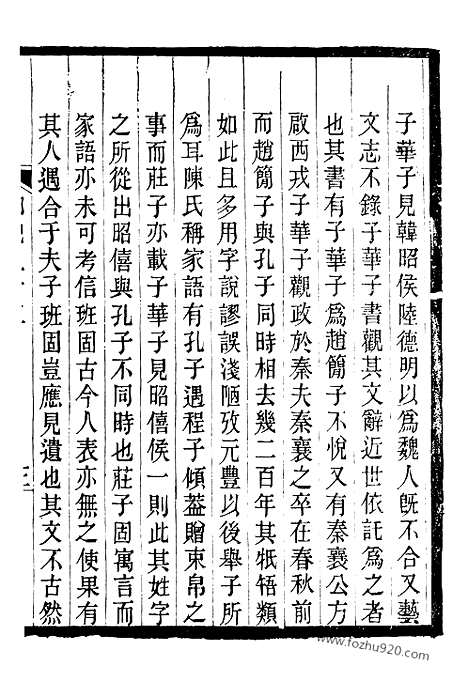 子華子見韓昭侯陸德明以爲魏人旣不合又藝
文志不錄子華子書觀其文辭近世依託爲之者
也其書有子華子爲趙簡子不悅又有秦襄公方
啟西戎子華子觀政於秦夫秦襄之卒在春秋前
而趙簡子與孔子同時相去幾二百年其牴牾類
如此且多用字說謬誤淺陋攷元豐以後舉子所
爲耳陳氏稱家語有孔子遇程子傾蓋贈束帛之
事而莊子亦載子華子見昭僖侯一則此其姓字
之所從出昭僖與孔子不同時也莊子固寓言而
家語亦未可考信班固古今人表亦無之使果有
其人遇合于夫子班固豈應見遺也其文不古然
www.fozhu920.com